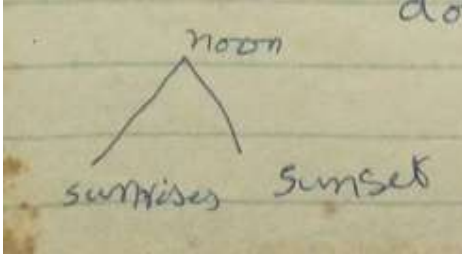 do
noon
sunrises sunset